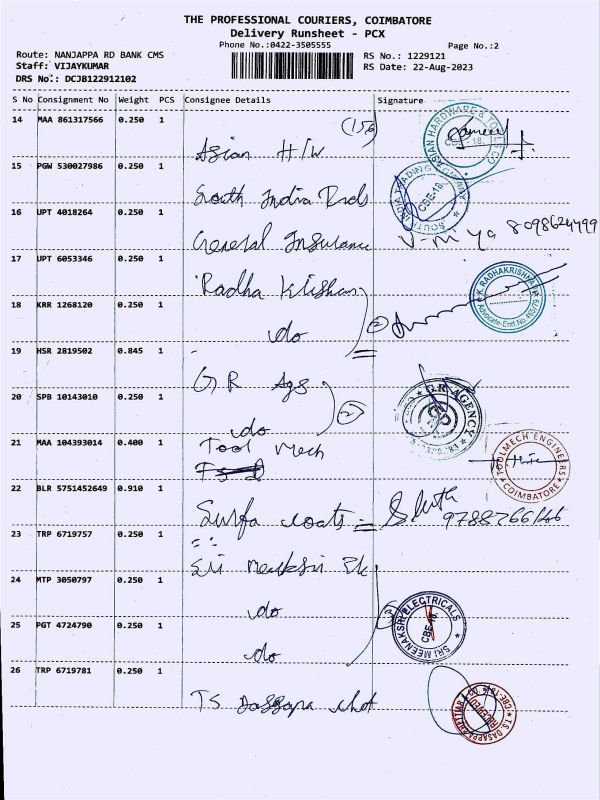 THE PROFESSIONAL COURIERS, COIMBATORE
Delivery Runsheet - PCX
Phone No.:0422-3505555
Page No.:2
Route: NANJAPPA RD BANK CMS
Staff: VIJAYKUMAR
DRS No.: DCJB122912102
RS No.: 1229121
RS Date: 22-Aug-2023
S No Consignment No Weight PCS Consignee Details Signature
14 MAA 861317566 0.250 1
Asian H/W
ASIAN HARDWARE & TOOLS CO
CBE-18.
15 PGW 530027986 0.250 1
South India
SOUTH INDIA TRADING
CBE-18
16 UPT 4018264 0.250 1
General Insurance
8098624499
17 UPT 6053346 0.250 1
Radha Krishan
RADHAKRISHNA
18 KRR 1268120 0.250 1
do
2
19 HSR 2819502 0.845 1
G R Ags
20 SPB 10143010 0.250 1
do
2
G.R. AGENCY
21 MAA 104393014 0.400 1
Tool Mech
TOOLMECH ENGINEERS
COIMBATORE
22 BLR 5751452649 0.910 1
Surfa coats
23 TRP 6719757 0.250 1
Sri
24 MTP 3050797 0.250 1
do
SRI MEENAKSHI ELECTRICALS
CBE-18.
25 PGT 4724790 0.250 1
do
26 TRP 6719781 0.250 1
T.S. Dasappa chet
RECEIVED